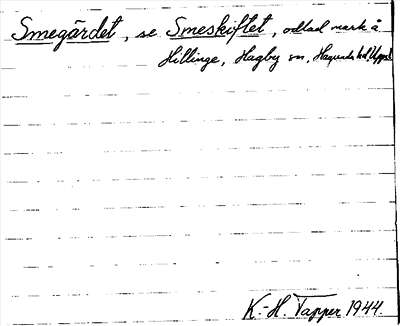 Smegärdet, se Smeskiftet, odlad mark å
Hillinge, Hagby sn, Hagunda hd, Uppsl
K.-H. Tapper 1944.